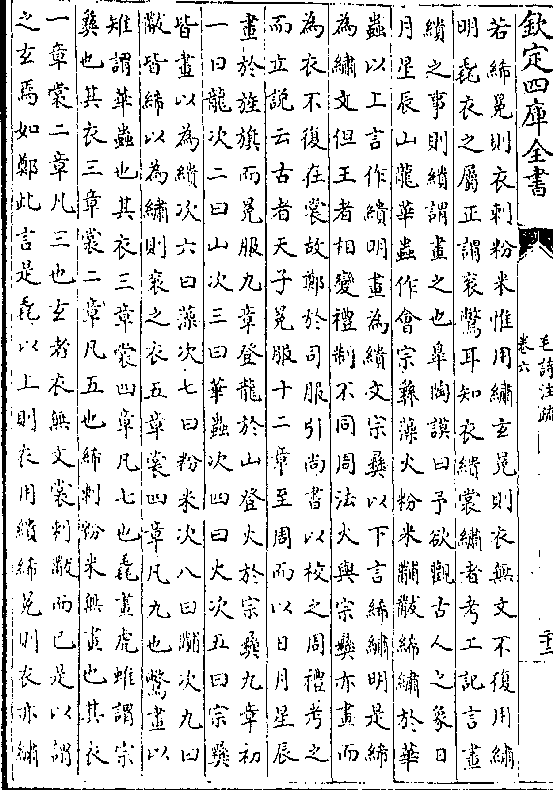 欽定四庫全書
毛詩注疏
卷六
若絺冕則衣刺粉米惟用繡玄冕則衣無文不復用繡
明毳衣之屬正謂衮鷩耳知衣繢裳繡者考工記言畫
繢之事則繢謂畫之也臯陶謨曰予欲觀古人之象日
月星辰山龍華蟲作會宗彝藻火粉米黼黻絺繡於華
蟲以上言作繢明畫為繢文宗彝以下言絺繡明是絺
為繡文但王者相變禮制不同周法火與宗彝亦畫而
為衣不復在裳故鄭於司服引尚書以校之周禮考之
而立說云古者天子冕服十二章至周而以日月星辰
畫於旌旗而冕服九章登龍於山登火於宗彝九章初
一曰龍次二曰山次三曰華蟲次四曰火次五曰宗彝
皆畫以為繢次六曰藻次七曰粉米次八曰黼次九曰
黻皆絺以為繡則衮之衣五章裳四章凡九也鷩畫以
雉謂華蟲也其衣三章裳四章凡七也毳畫虎蜼謂宗
彝也其衣三章裳二章凡五也絺刺粉米無畫也其衣
一章裳二章凡三也玄者衣無文裳刺黻而已是以謂
之玄焉如鄭此言是毳以上則衣用繢絺冕則衣亦繡